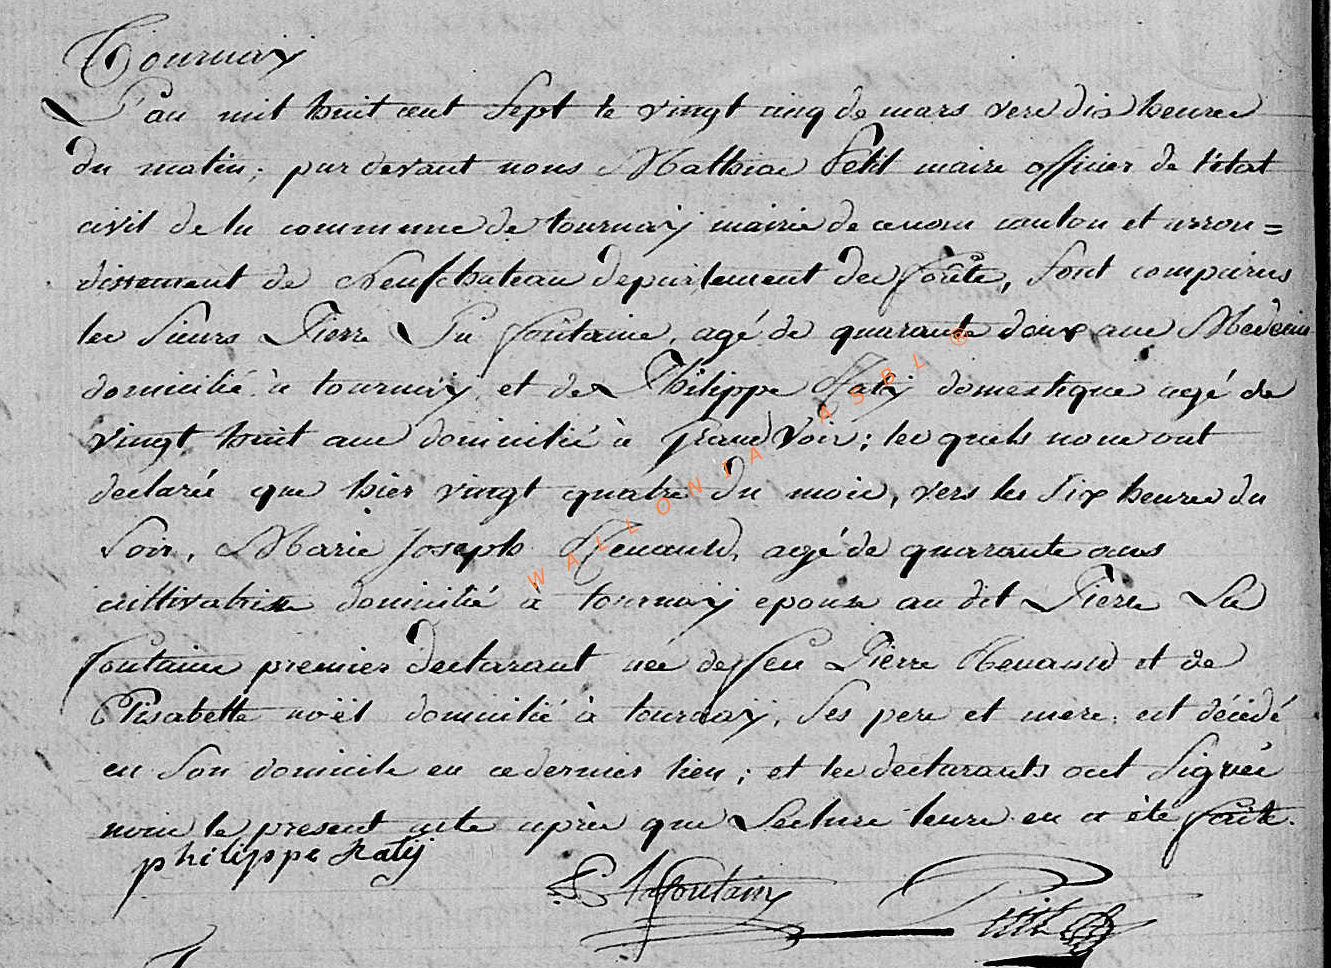 Tournay
L'an mil huit cent sept le vingt cinq de mars vers dix heures
du matin; par devant nous Mathias Petit maire officier de l'etat
civil de la commune de tournay mairie de ce nom canton et arron=
dissement de Neufchateau departement des forêts, sont comparus
les sieurs Pierre La fontaine, agé de quarante deux ans Medecin
domicilié à tournay et de Philippe Raty domestique agé de
vingt huit ans domicilié à grand Voir; les quels nous ont
declarés que hier vingt quatre du mois, vers les six heures du
soir, Marie Joseph Henauld, agé de quarante ans
cultivatrice domicilié à tournay epouse au dit Pierre La
fontaine premier declarant née de feu Pierre Henauld et de
Elisabette noël domicilié à tournay, ses pere et mere, est décédé
en son domicile en ce dernier lieu; et les declarants ont signés
nous le present acte après que Lecture leure en a été faite.
philippe Raty
P Lafontaine Petit
WALLONIA ASBL ®